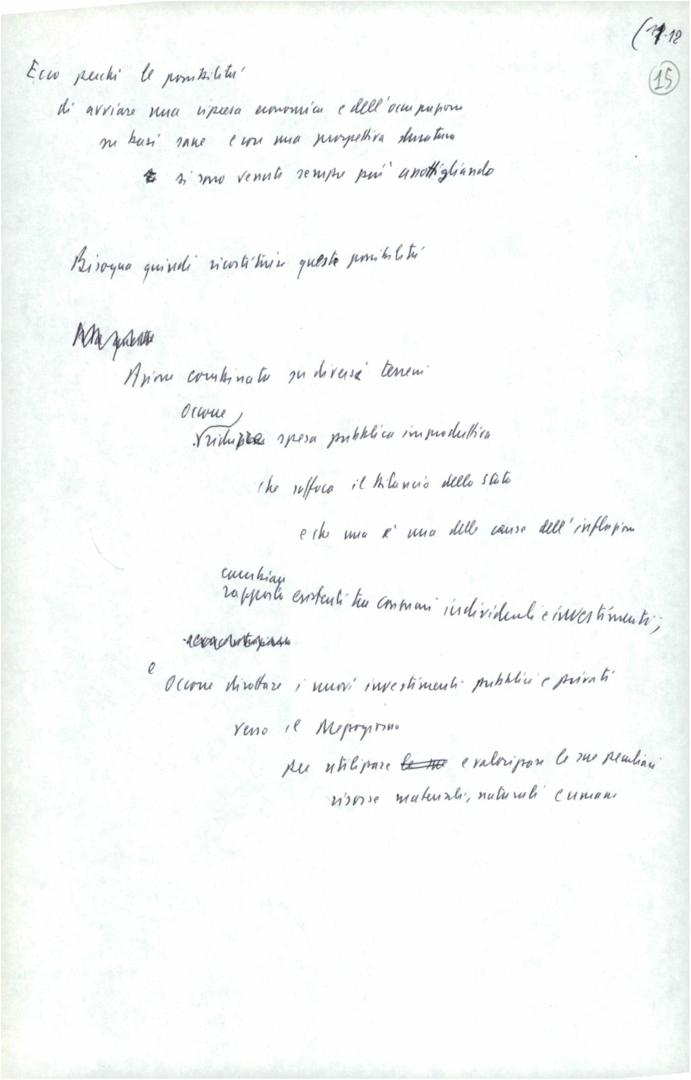 (11-12
15
Ecco perchè le possibilità
di avviare una ripresa economica e dell'occupazione
su basi sane e con una prospettiva duratura
si sono venute sempre più assottigliando
Bisogna quindi ricostituire queste possibilità
Azione combinata su diversi terreni
Occorre
ridurre spesa pubblica improduttiva
che soffoca il bilancio dello stato
e che una è una delle cause dell'inflazione
cambiare
rapporti esistenti tra consumi individuali e investimenti;
e
Occorre dirottare i nuovi investimenti pubblici e privati
verso il Mezzogiorno
per utilizzare le sue e valorizzare le sue peculiari
risorse materiali, naturali e umane